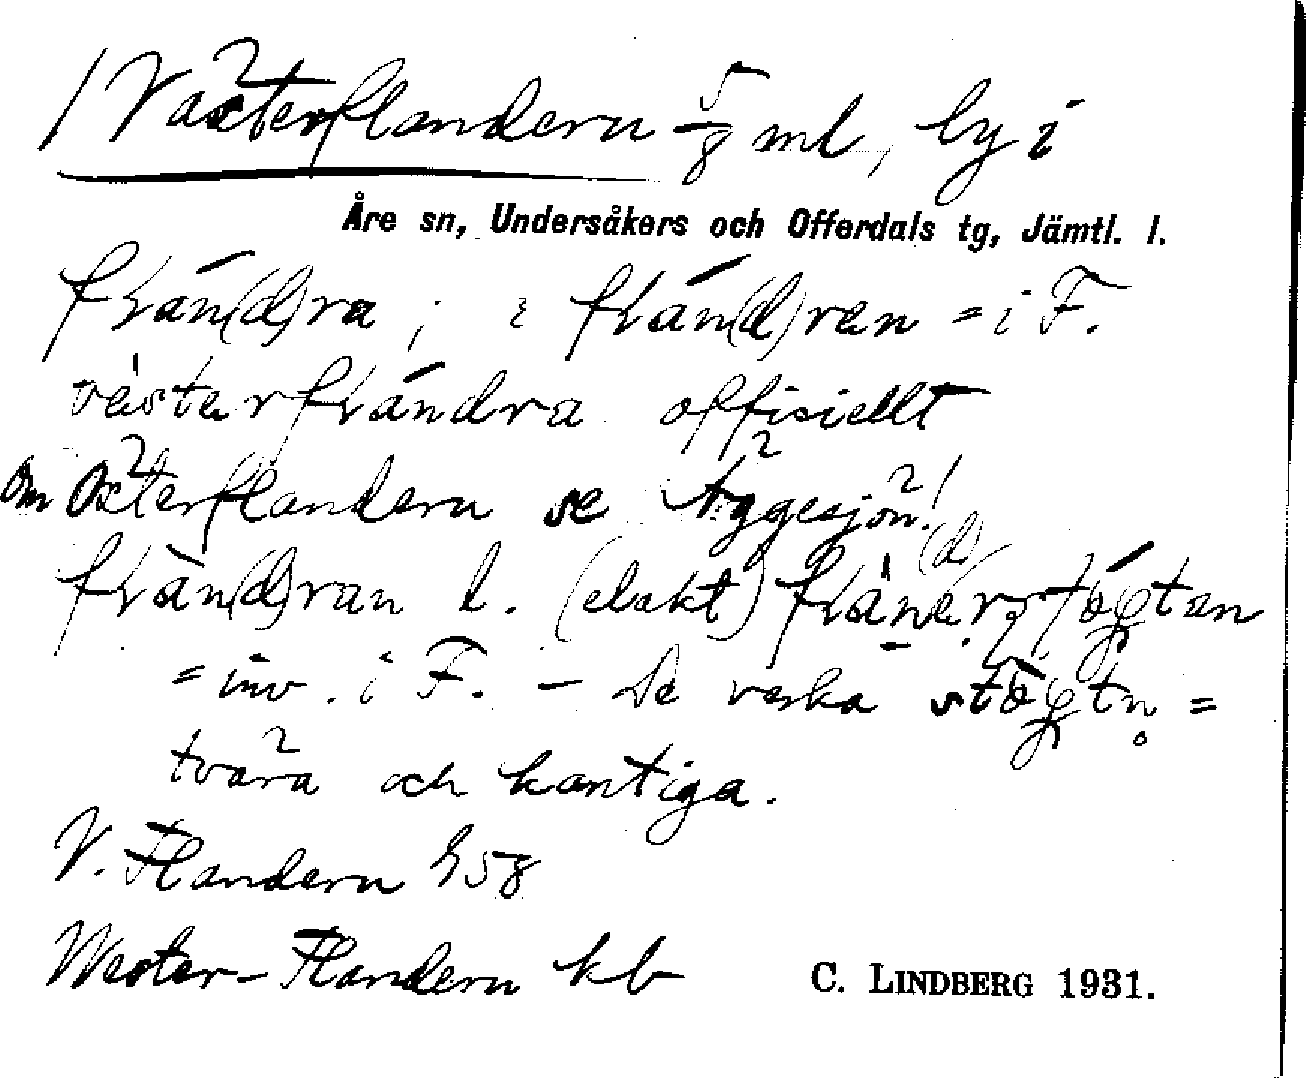 / Västerflandern 5/8 ml, by i
Åre sn, Undersåkers och Offerdals tg, Jämtl. l.
flán(d)ra ; i flán(d)ren = i F.
västerflándra offisiellt
Om Österflandern se Äggesjön!
flàn(d)ran l. (elakt)
= inv. i F. – De verka
tvära och kantiga.
V. Flandern
Wester-Flandern kb
C. LINDBERG 1931.